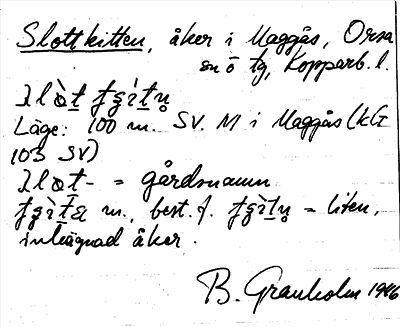 Slottkitten, åker i Maggås, Orsa
sn ö tg, Kopparb. l.
Läge: 100 m. SV. M i Maggås (kG
103 SV)
= gårdsnamn
m., best. f. = liten,
inhägnad åker.
B. Granholm 1946